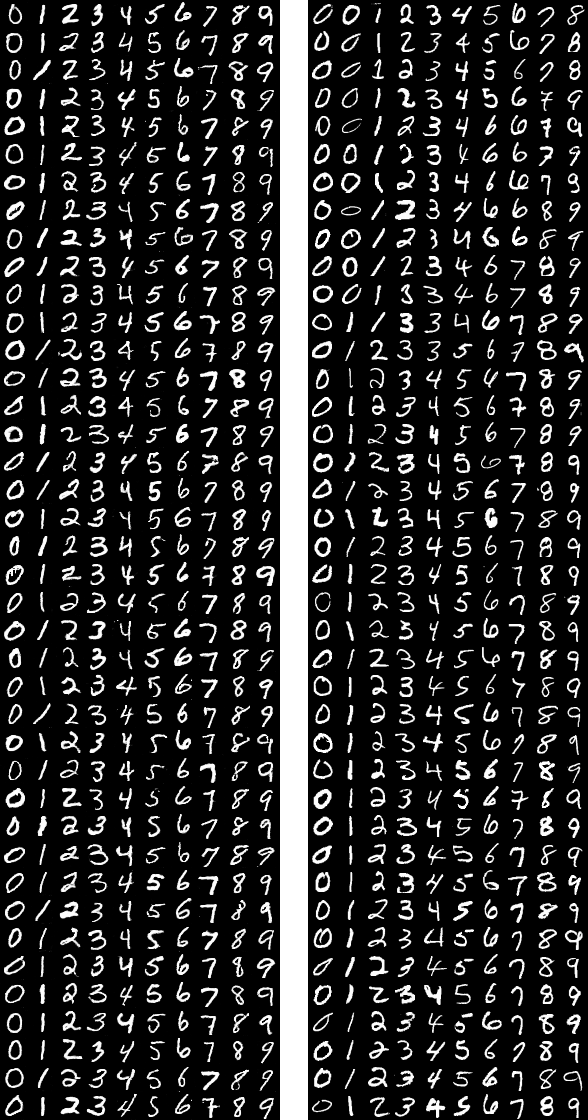 0 1 2 3 4 5 6 7 8 9
0 1 2 3 4 5 6 7 8 9
0 1 2 3 4 5 6 7 8 9
0 1 2 3 4 5 6 7 8 9
0 1 2 3 4 5 6 7 8 9
0 1 2 3 4 5 6 7 8 9
0 1 2 3 4 5 6 7 8 9
0 1 2 3 4 5 6 7 8 9
0 1 2 3 4 5 6 7 8 9
0 1 2 3 4 5 6 7 8 9
0 1 2 3 4 5 6 7 8 9
0 1 2 3 4 5 6 7 8 9
0 1 2 3 4 5 6 7 8 9
0 1 2 3 4 5 6 7 8 9
0 1 2 3 4 5 6 7 8 9
0 1 2 3 4 5 6 7 8 9
0 1 2 3 4 5 6 7 8 9
0 1 2 3 4 5 6 7 8 9
0 1 2 3 4 5 6 7 8 9
0 1 2 3 4 5 6 7 8 9
0 1 2 3 4 5 6 7 8 9
0 1 2 3 4 5 6 7 8 9
0 1 2 3 4 5 6 7 8 9
0 1 2 3 4 5 6 7 8 9
0 1 2 3 4 5 6 7 8 9
0 1 2 3 4 5 6 7 8 9
0 1 2 3 4 5 6 7 8 9
0 1 2 3 4 5 6 7 8 9
0 1 2 3 4 5 6 7 8 9
0 1 2 3 4 5 6 7 8 9
0 1 2 3 4 5 6 7 8 9
0 1 2 3 4 5 6 7 8 9
0 1 2 3 4 5 6 7 8 9
0 1 2 3 4 5 6 7 8 9
0 1 2 3 4 5 6 7 8 9
0 1 2 3 4 5 6 7 8 9
0 1 2 3 4 5 6 7 8 9
0 1 2 3 4 5 6 7 8 9
0 1 2 3 4 5 6 7 8 9
0 1 2 3 4 5 6 7 8 9
0 0 1 2 3 4 5 6 7 8
0 0 1 2 3 4 5 6 7 8
0 0 1 2 3 4 5 6 7 8
0 0 1 2 3 4 5 6 7 9
0 0 1 2 3 4 6 6 7 9
0 0 1 2 3 4 6 6 7 9
0 0 1 2 3 4 6 6 7 9
0 0 1 2 3 4 6 6 8 9
0 0 1 2 3 4 6 6 8 9
0 0 1 2 3 4 6 7 8 9
0 0 1 3 3 4 6 7 8 9
0 1 1 3 3 4 6 7 8 9
0 1 2 3 3 5 6 7 8 9
0 1 2 3 4 5 6 7 8 9
0 1 2 3 4 5 6 7 8 9
0 1 2 3 4 5 6 7 8 9
0 1 2 3 4 5 6 7 8 9
0 1 2 3 4 5 6 7 8 9
0 1 2 3 4 5 6 7 8 9
0 1 2 3 4 5 6 7 8 9
0 1 2 3 4 5 6 7 8 9
0 1 2 3 4 5 6 7 8 9
0 1 2 3 4 5 6 7 8 9
0 1 2 3 4 5 6 7 8 9
0 1 2 3 4 5 6 7 8 9
0 1 2 3 4 5 6 7 8 9
0 1 2 3 4 5 6 7 8 9
0 1 2 3 4 5 6 7 8 9
0 1 2 3 4 5 6 7 8 9
0 1 2 3 4 5 6 7 8 9
0 1 2 3 4 5 6 7 8 9
0 1 2 3 4 5 6 7 8 9
0 1 2 3 4 5 6 7 8 9
0 1 2 3 4 5 6 7 8 9
0 1 2 3 4 5 6 7 8 9
0 1 2 3 4 5 6 7 8 9
0 1 2 3 4 5 6 7 8 9
0 1 2 3 4 5 6 7 8 9
0 1 2 3 4 5 6 7 8 9
0 1 2 3 4 5 6 7 8 9